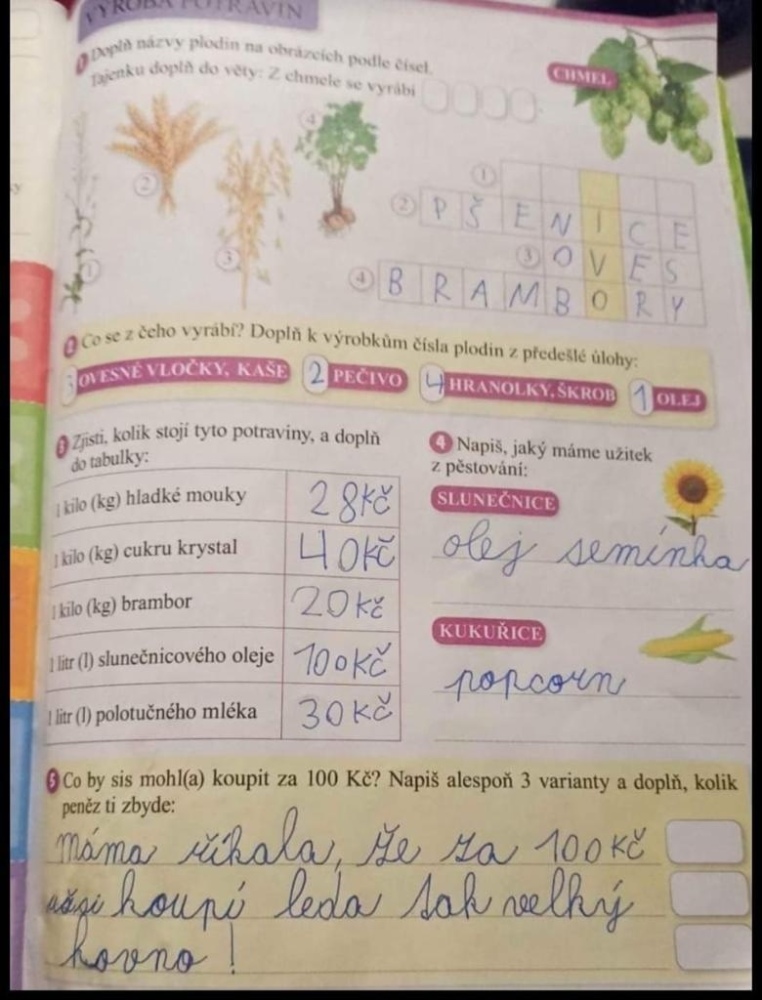 VÝROBA POTRAVIN
1 Doplň názvy plodin na obrázcích podle čísel.
Tajenku doplň do věty: Z chmele se vyrábí
CHMEL
4
2
3
1
1
2 PŠENICE
3 OVES
4 BRAMBORY
2 Co se z čeho vyrábí? Doplň k výrobkům čísla plodin z předešlé úlohy:
3 OVESNÉ VLOČKY, KAŠE 2 PEČIVO 4 HRANOLKY, ŠKROB 1 OLEJ
3 Zjisti, kolik stojí tyto potraviny, a doplň
do tabulky:
1 kilo (kg) hladké mouky 28Kč
1 kilo (kg) cukru krystal 40Kč
1 kilo (kg) brambor 20Kč
1 litr (l) slunečnicového oleje 100Kč
1 litr (l) polotučného mléka 30Kč
4 Napiš, jaký máme užitek
z pěstování:
SLUNEČNICE
olej semínka
KUKUŘICE
popcorn
5 Co by sis mohl(a) koupit za 100 Kč? Napiš alespoň 3 varianty a doplň, kolik
peněz ti zbyde:
máma říkala, že za 100Kč
koupí leda tak velký
hovno!